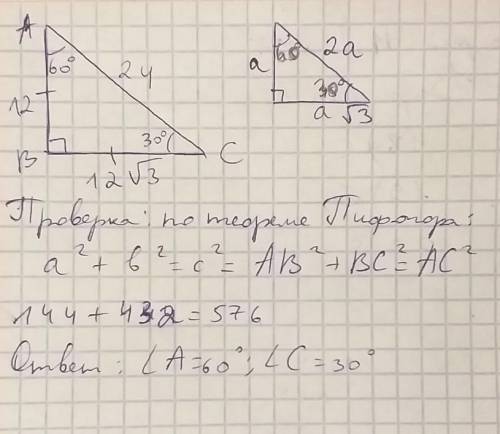 A
60°
24
12
30°
B
C
12√3
60°
2a
a
30°
a √3
Проверка: по теореме Пифогора:
a² + b² = c² = AB² + BC² = AC²
144 + 432 = 576
Ответ: ∠A=60°; ∠C=30°